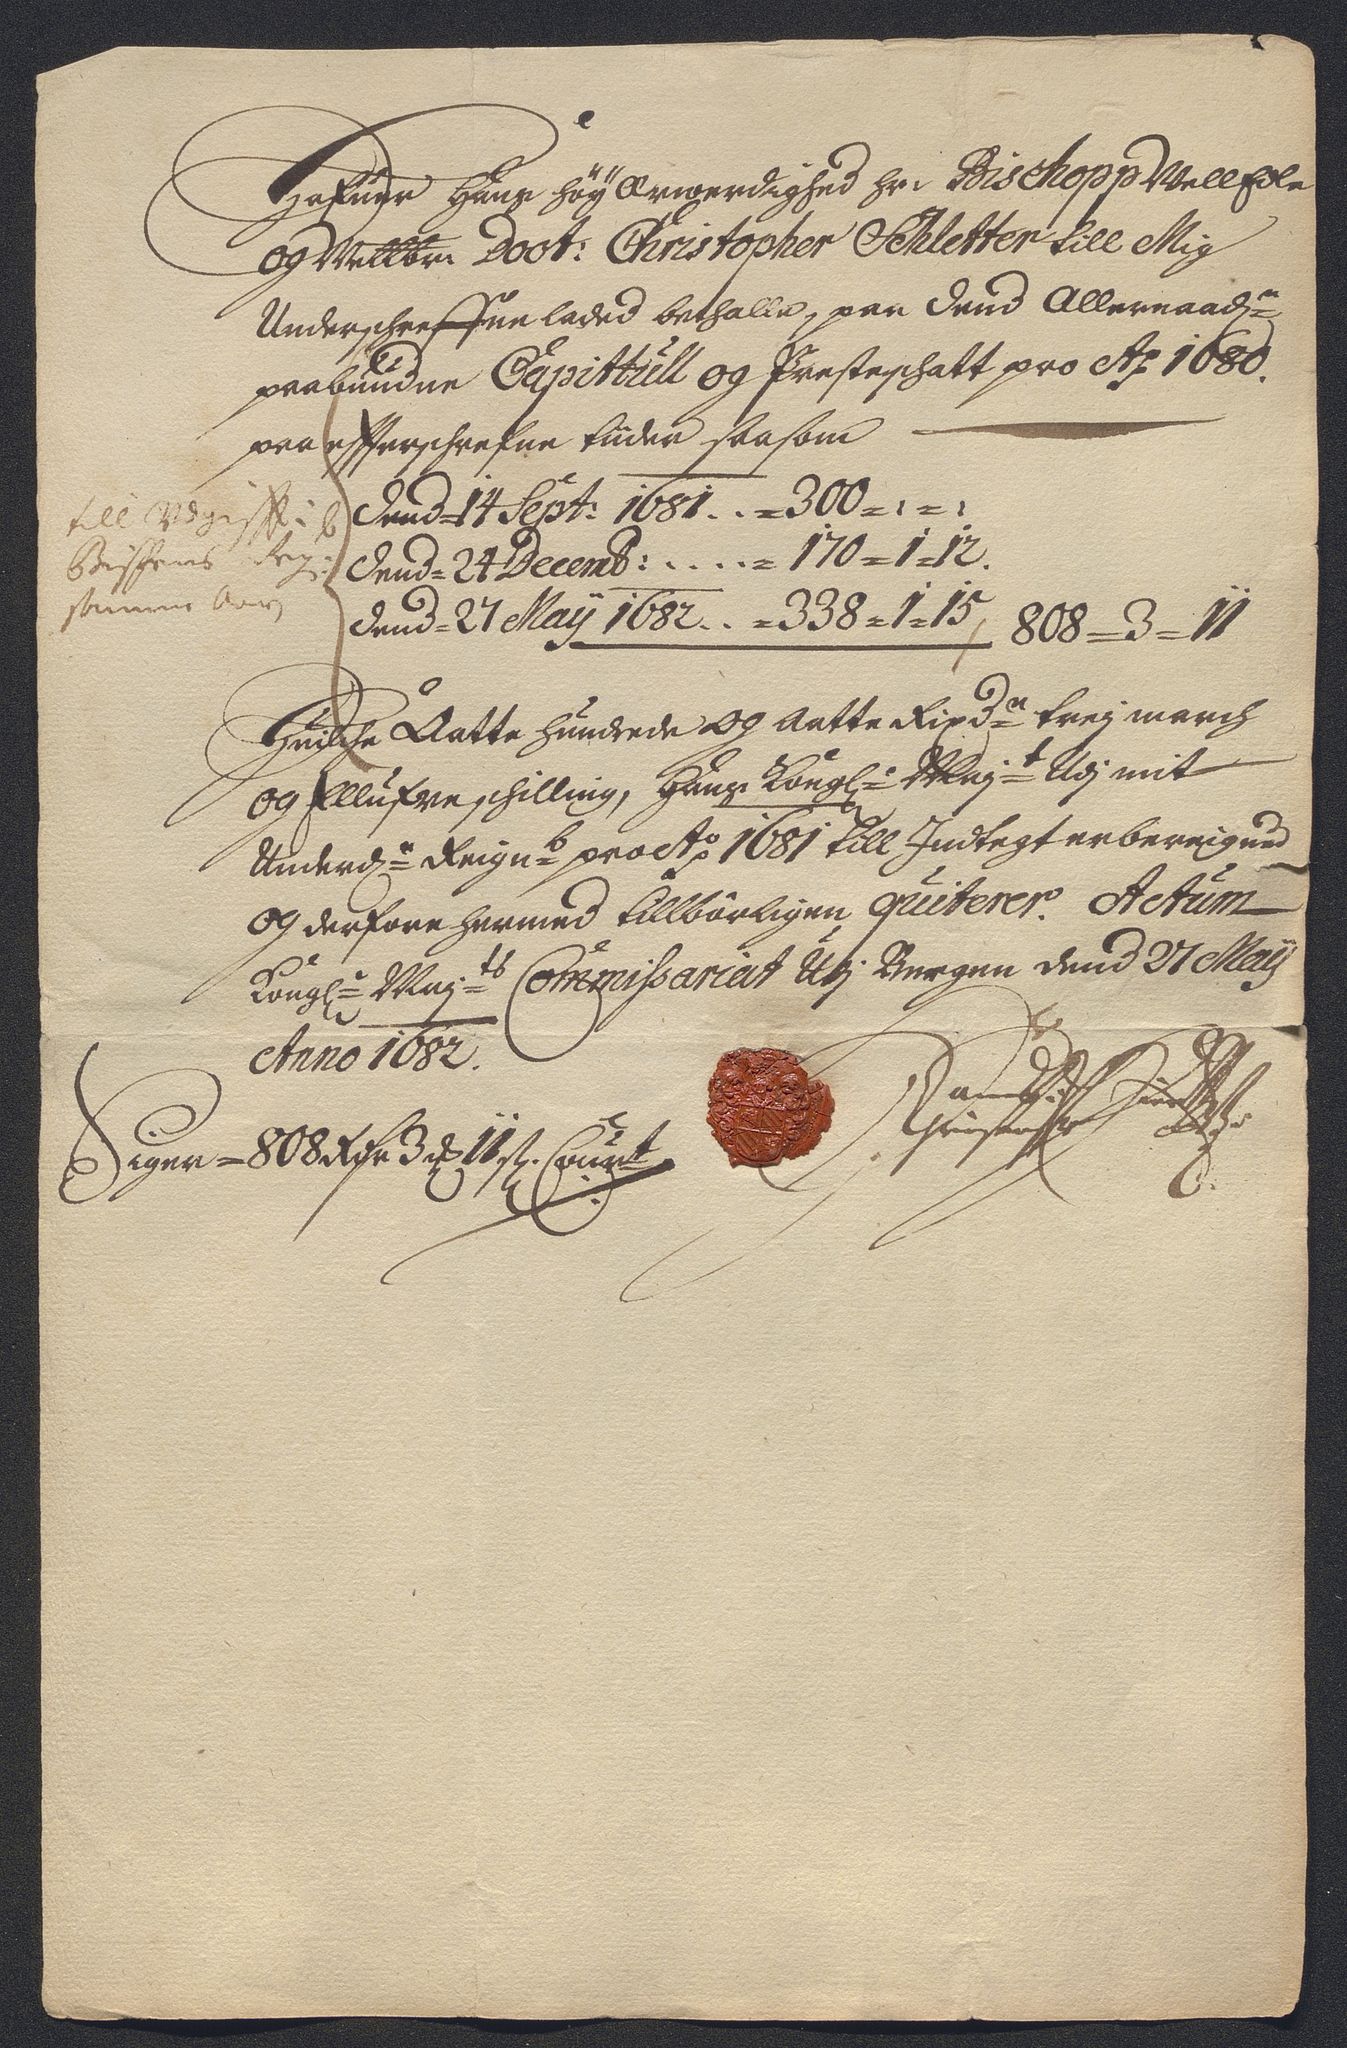 Hafuer Hans høÿ Ærwerdighed hr: Bischopp Vell Edle
og Vellbr: Doct: Christopher Schletter till Mig
Underschreffne laded bethalle, paa dend Allernaadn
paabuudne Capittull og Presteschatt pro Ao 1680.
paa effterschrefne tiider saasom
till Udgifft i
Bispens Regn:
samme Aar
dend 14 Sept: 1681 .. = 300 = : = :
dend = 24 Decemb: ..... = 170 = 1 = 12.
dend = 27 Maÿ 1682 .. = 338 = 1 = 15 808 = 3 = 11
Huilche Aatte hundrede og aatte Rixdr treÿ march
og Ellufve schilling, Hans Kongl: Maÿt Udj mit
Underdn Reignb pro Ao 1681 till Indtegt er bereigned
og derfore hermed tillbørligen quiterer. Actum
Kongl: Maÿts Commissariat Udj Bergen dend 27 Maÿ
Anno 1682.
Siger = 808 Rdr 3 mk 11 sh. Court